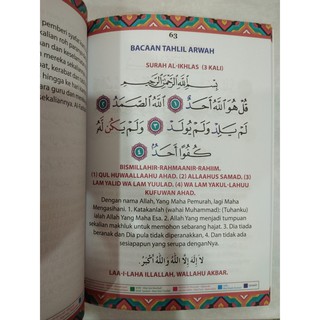 pemberi syafaat
kan dan keselamatan
kan roh para
mereka sekalian
t, kerabat dan
eka dan kepada
ara guru dan
ekaliannya. Al
63
BACAAN TAHLIL ARWAH
SURAH AL-IKHLAS (3 KALI)
بِسْمِ اللَّهِ الرَّحْمَٰنِ الرَّحِيمِ
قُلْ هُوَ اللَّهُ أَحَدٌ ۝١ اللَّهُ الصَّمَدُ ۝٢
لَمْ يَلِدْ وَلَمْ يُولَدْ ۝٣ وَلَمْ يَكُنْ لَهُ
كُفُوًا أَحَدٌ ۝٤
BISMILLAHIR-RAHMAANIR-RAHIIM.
(1) QUL HUWAALLAAHU AHAD. (2) ALLAAHUS SAMAD. (3)
LAM YALID WA LAM YUULAD, (4) WA LAM YAKUL-LAHUU
KUFUWAN AHAD.
Dengan nama Allah, Yang Maha Pemurah, lagi Maha
Mengasihani. 1. Katakanlah (wahai Muhammad): (Tuhanku)
ialah Allah Yang Maha Esa. 2. Allah Yang menjadi tumpuan
sekalian makhluk untuk memohon sebarang hajat. 3. Dia tiada
beranak dan Dia pula tidak diperanakkan, 4. Dan tidak ada
sesiapapun yang serupa denganNya.
لَا إِلَهَ إِلَّا اللَّهُ وَاللَّهُ أَكْبَرُ
LAA-I-LAHA ILLALLAH, WALLAHU AKBAR.